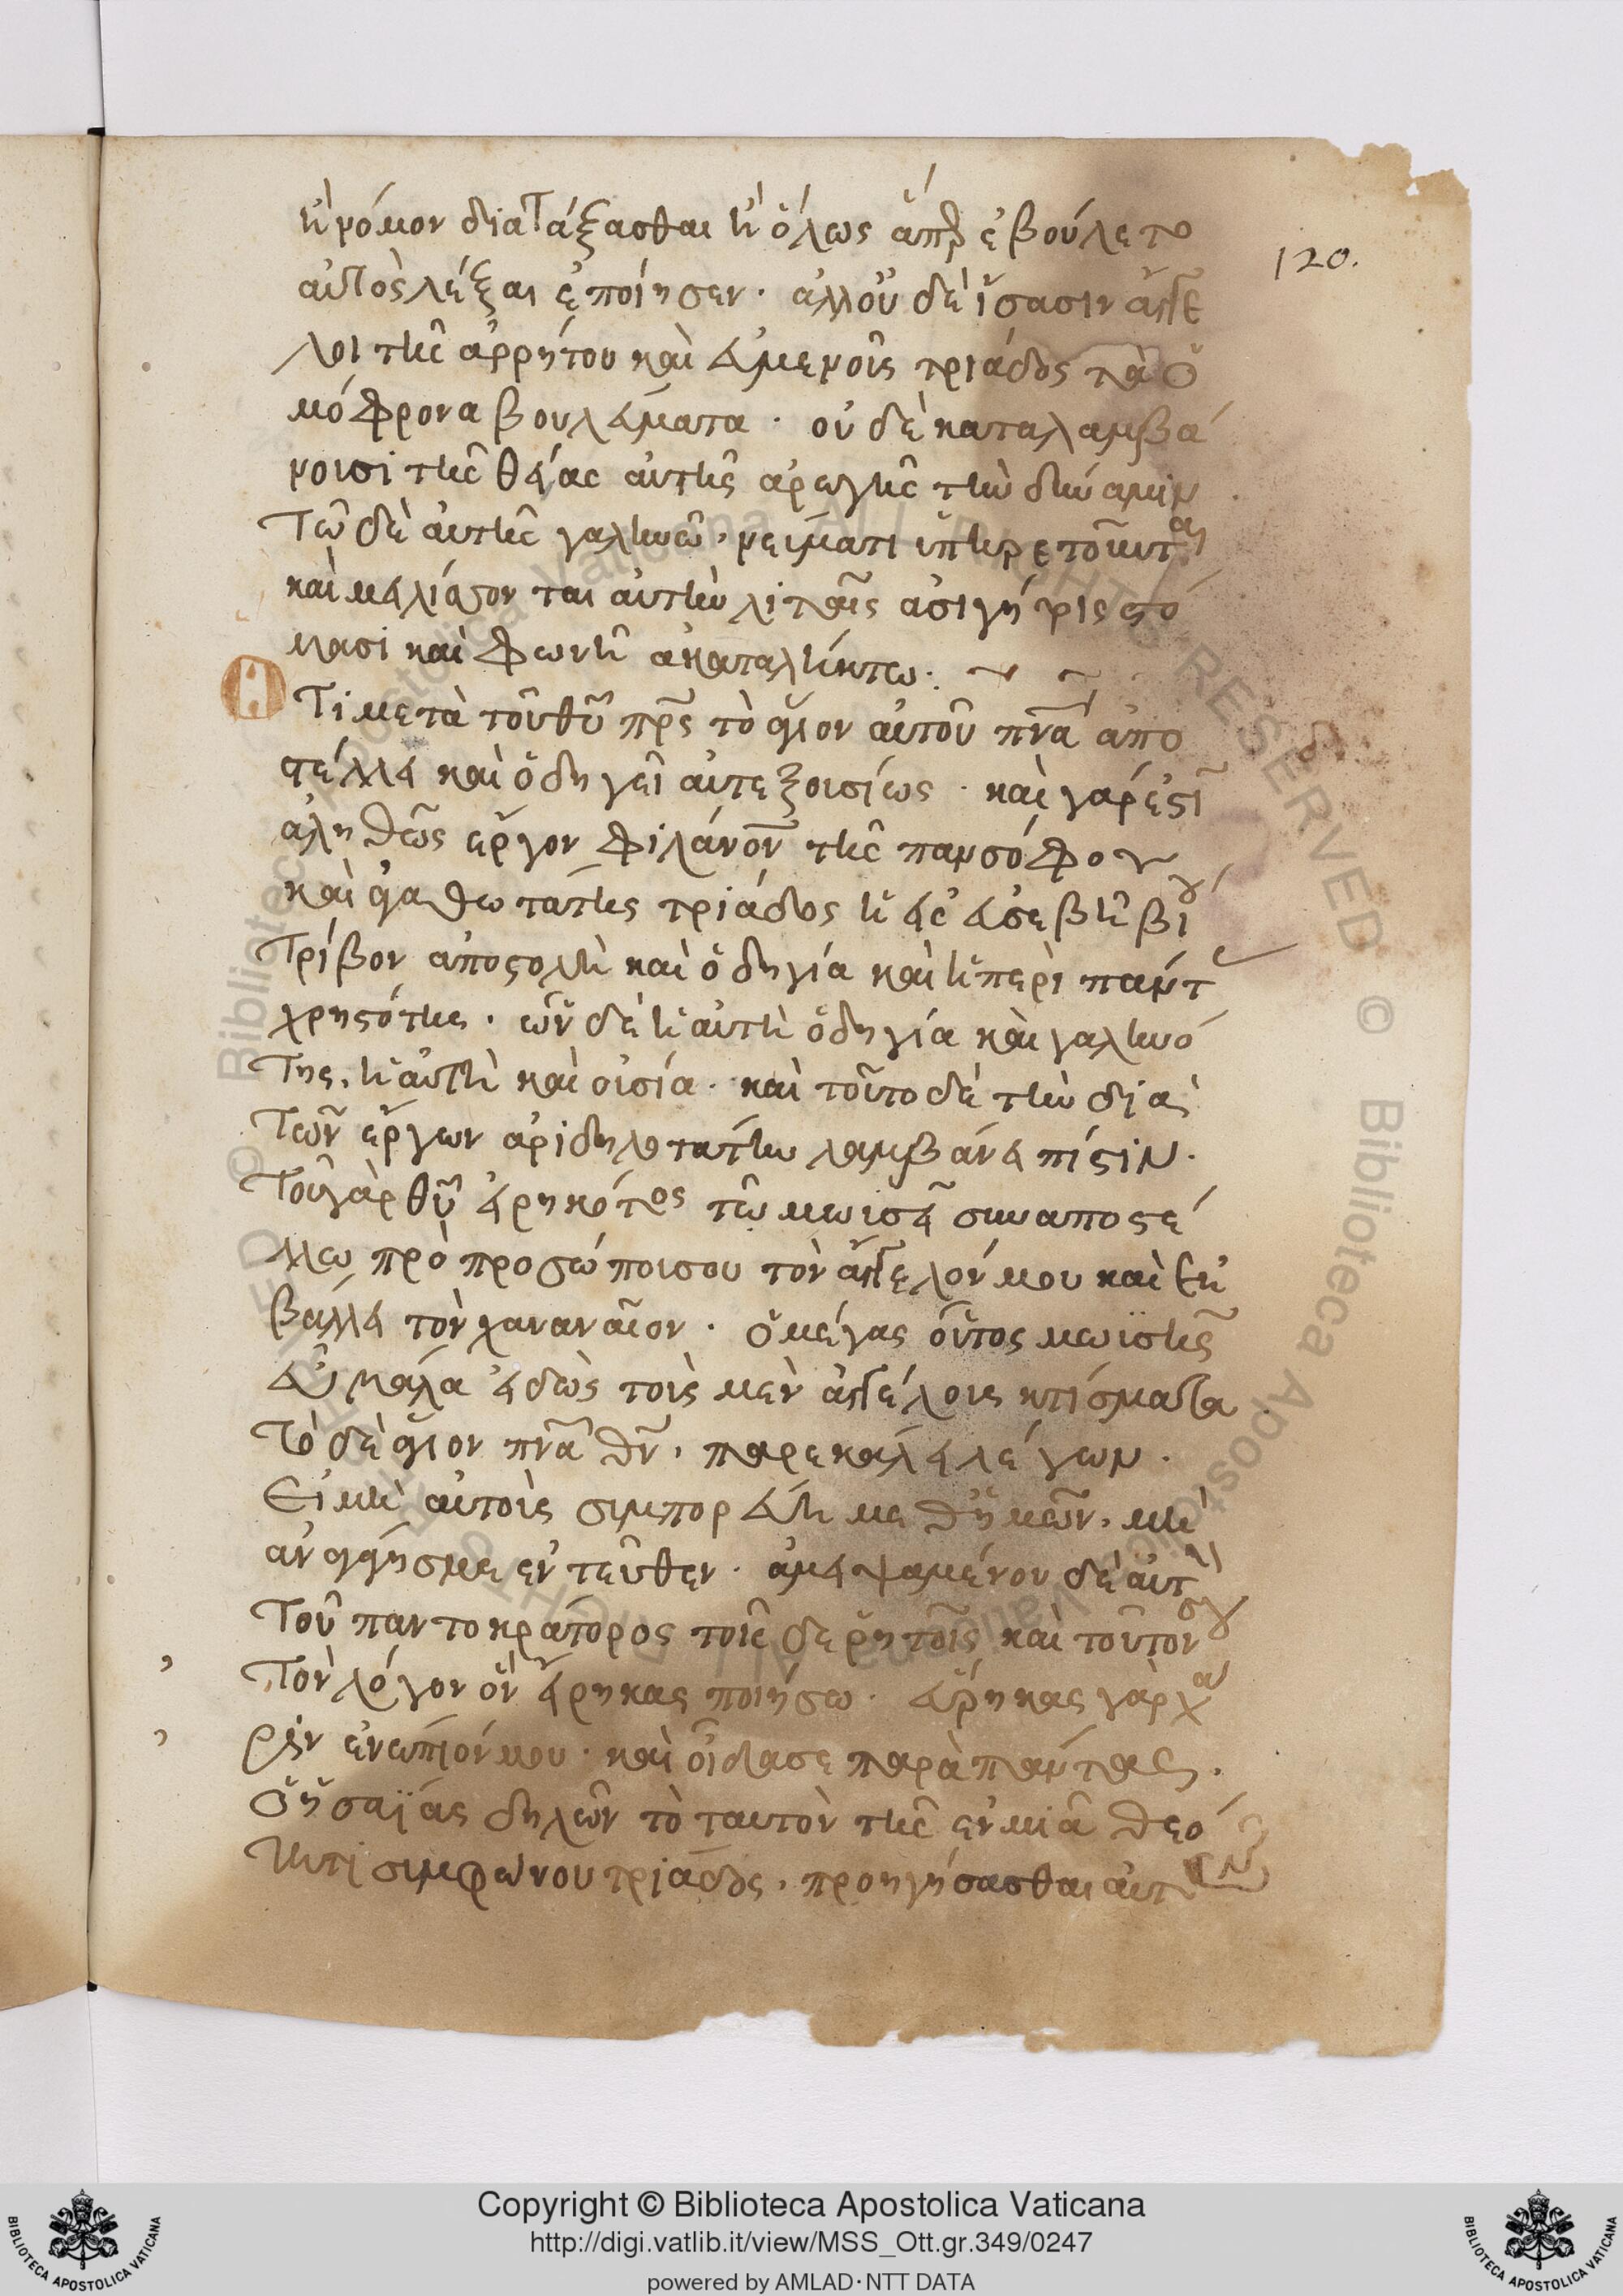 ἢ νόμον διατάξασθαι ἢ ὅλως ἅπερ ἐβούλετο
120.
αὐτὸς λέξαι ἐποίησεν. ἀλλ' οὐδὲ ἴσασιν ἄγγε
λοι τῆς ἀρρήτου καὶ εἰμενοῦς τριάδος τὰ ὁ
μόφρονα βουλεύματα. οὐδὲ καταλαμβά
νουσι τῆς θείας αὐτῆς ἀρωγῆς τὴν δύναμιν.
τῶ δὲ αὐτῆς γαληνῶ νεύματι ὑπηρετοῦνται
καὶ μειλίσσονται αὐτὴν λιταῖς ἀσιγήτοις στό
μασι καὶ φωνῆ ἀκαταλήκτω:
Ὅτι μετὰ τοῦ θυ πρς τὸ ἅγιον αὐτοῦ πνα ἀπο
στέλλει καὶ ὁδηγεῖ αὐτεξουσίως. καὶ γάρ ἐστι
ἀληθῶς ἔργον φιλάνον τῆς πανσόφου
καὶ ἀγαθωτάτης τριάδος ἡ εἰς εὐσεβῆ βίου
τρίβον ἀποστολὴ καὶ ὁδηγία καὶ ἡ περὶ πάντας
χρηστότης. ὧν δὲ ἡ αὐτὴ ὁδηγία καὶ γαληνό
της, ἡ αὐτὴ καὶ οὐσία. καὶ τοῦτο δὲ τὴν διὰ
τῶν ἔργων ἀριδηλοτάτην λαμβάνει πίστιν.
τοῦ γὰρ θυ εἰρηκότος τῶ μωυσῆ συναποστέ
λλω πρὸ προσώπου σου τὸν ἄγγελόν μου καὶ ἐκ
βάλλει τὸν χαναναῖον. ὁ μέγας οὗτος μωϋσῆς
εὖ μάλα εἰδὼς τοὺς μὲν ἀγγέλους κτίσματα.
τὸ δὲ ἅγιον πνα θν, παρεκάλει λέγων.
Εἰ μὴ αὐτὸς συμπορεύη μεθ' ἡμῶν, μή
ἀναγάγης με ἐντεῦθεν. ἀμειψαμένου δὲ αὐτὸν
τοῦ παντοκράτορος τοῖσδε ῥητοῖς καὶ τοῦτόν σοι
τὸν λόγον ὃν εἴρηκας ποιήσω. εὕρηκας γὰρ χά
ριν ἐνώπιόν μου. καὶ οἶδά σε παρὰ πάντας.
ὁ ἡσαΐας δηλῶν τὸ ταυτὸν τῆς ἐν μιᾶ θεό
τητι συμφώνου τριάδος, προηγήσασθαι αὐτῶν
Copyright © Biblioteca Apostolica Vaticana
http://digi.vatlib.it/view/MSS_Ott.gr.349/0247
powered by AMLAD·NTT DATA